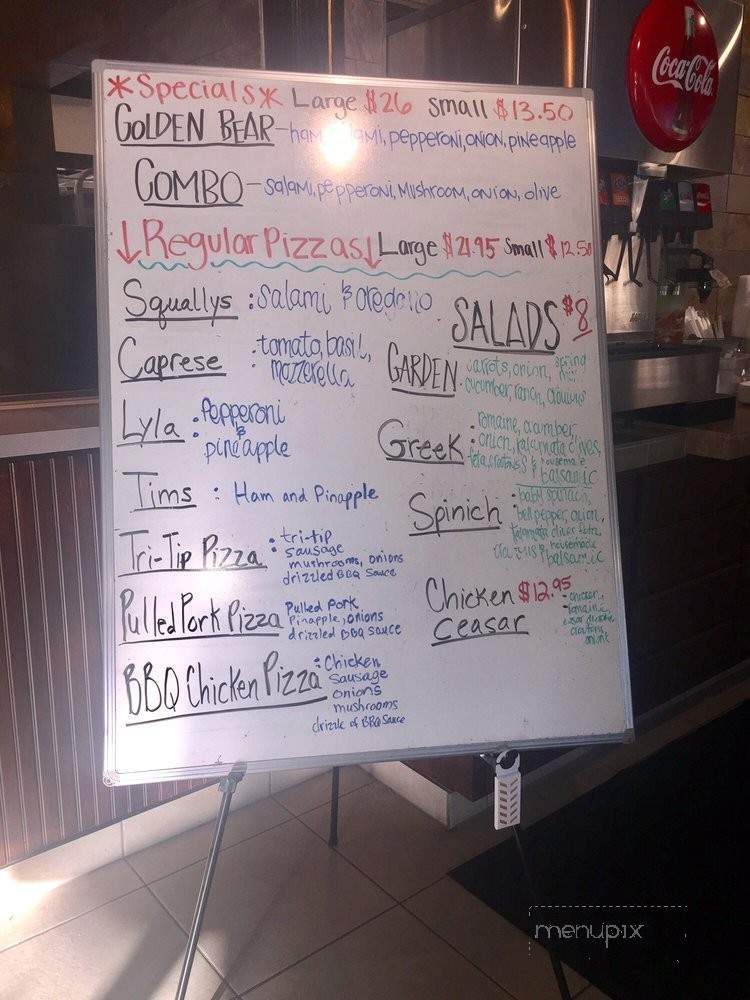 *Specials* Large $26 Small $13.50
GOLDEN BEAR - ham, salami, pepperoni, onion, pineapple
COMBO - salami, pepperoni, mushroom, onion, olive
↓Regular Pizzas↓ Large $21.95 Small $12.50
Squallys : salami & oregano
Caprese : tomato, basil,
mozzerella
Lyla : Pepperoni
&
pineapple
Tims : Ham and Pinapple
Tri-Tip Pizza : tri-tip
sausage
mushrooms, onions
drizzled BBQ Sauce
Pulled Pork Pizza Pulled Pork
Pinapple, onions
drizzled BBQ sauce
BBQ Chicken Pizza : Chicken
Sausage
onions
mushrooms
drizzle of BBQ Sauce
SALADS $8
GARDEN : carrots, onion, spring mix
cucumber, ranch, croutons
Greek : romaine, cucumber,
onion, kalamata olives,
feta, croutons & housemade
balsamic
Spinich : baby spinach,
bell pepper, onion,
kalamata olives feta
housemade
balsamic
Chicken $12.95
Ceasar
- chicken
- romaine
croutons
Coca-Cola
menupix